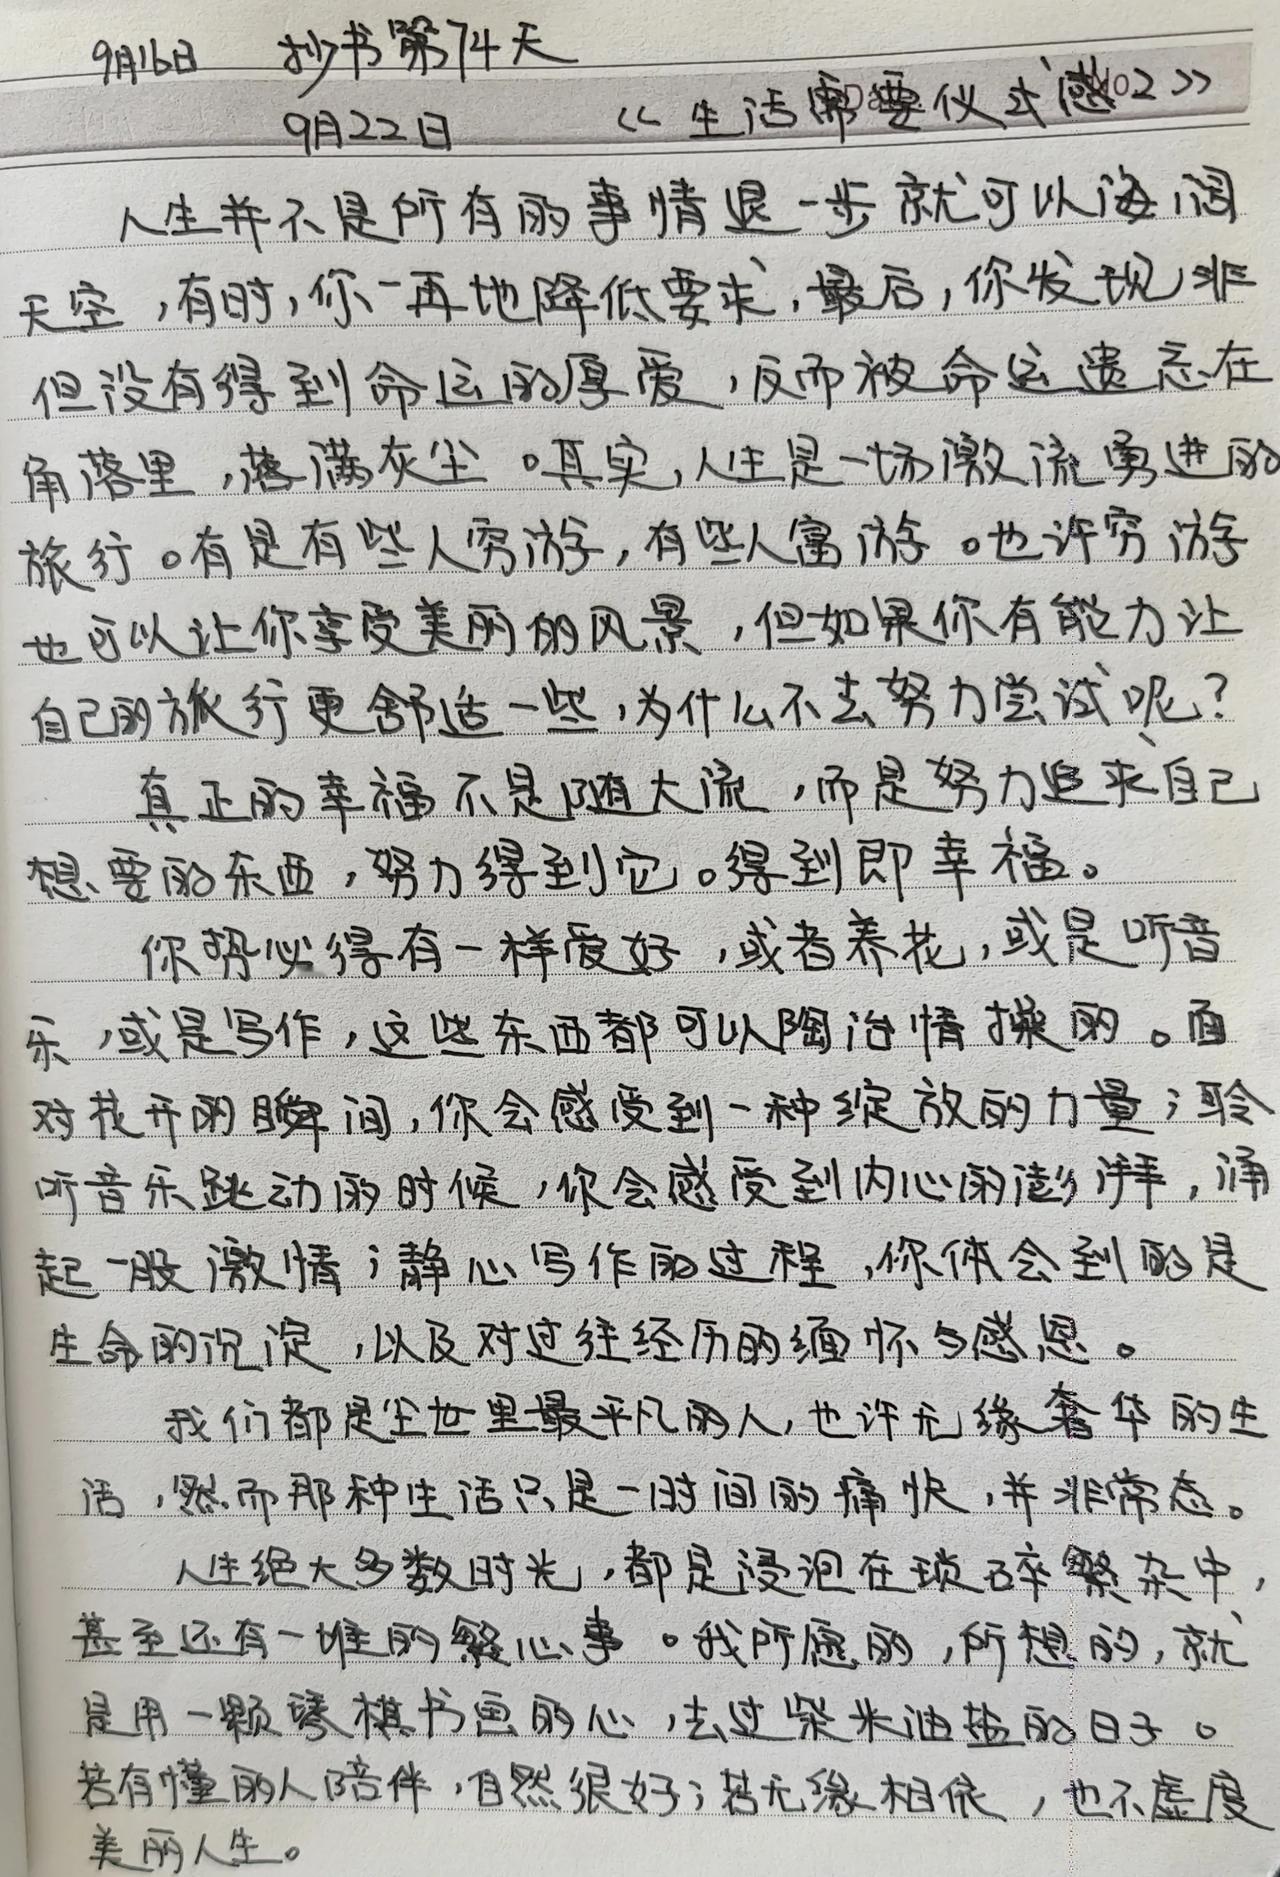 9月16日 抄书第74天
9月22日 《生活需要仪式感02》
人生并不是所有的事情退一步就可以海阔
天空，有时，你一再地降低要求，最后，你发现，非
但没有得到命运的厚爱，反而被命运遗忘在
角落里，落满灰尘。其实，人生是一场激流勇进的
旅行。有是有些人穷游，有些人富游。也许穷游
也可以让你享受美丽的风景，但如果你有能力让
自己的旅行更舒适一些，为什么不去努力尝试呢？
真正的幸福不是随大流，而是努力追求自己
想要的东西，努力得到它。得到即幸福。
你势必得有一样爱好，或者养花，或是听音
乐，或是写作，这些东西都可以陶冶情操的。面
对花开的瞬间，你会感受到一种绽放的力量；聆
听音乐跳动的时候，你会感受到内心的澎湃，涌
起一股激情；静心写作的过程，你体会到的是
生命的沉淀，以及对过往经历的缅怀与感恩。
我们都是尘世里最平凡的人，也许无缘奢华的生
活，然而那种生活只是一时间的痛快，并非常态。
人生绝大多数时光，都是浸泡在琐碎繁杂中，
甚至还有一堆的繁心事。我所愿的，所想的，就
是用一颗琴棋书画的心，去过柴米油盐的日子。
若有懂的人陪伴，自然很好；若无缘相依，也不虚度
美丽人生。